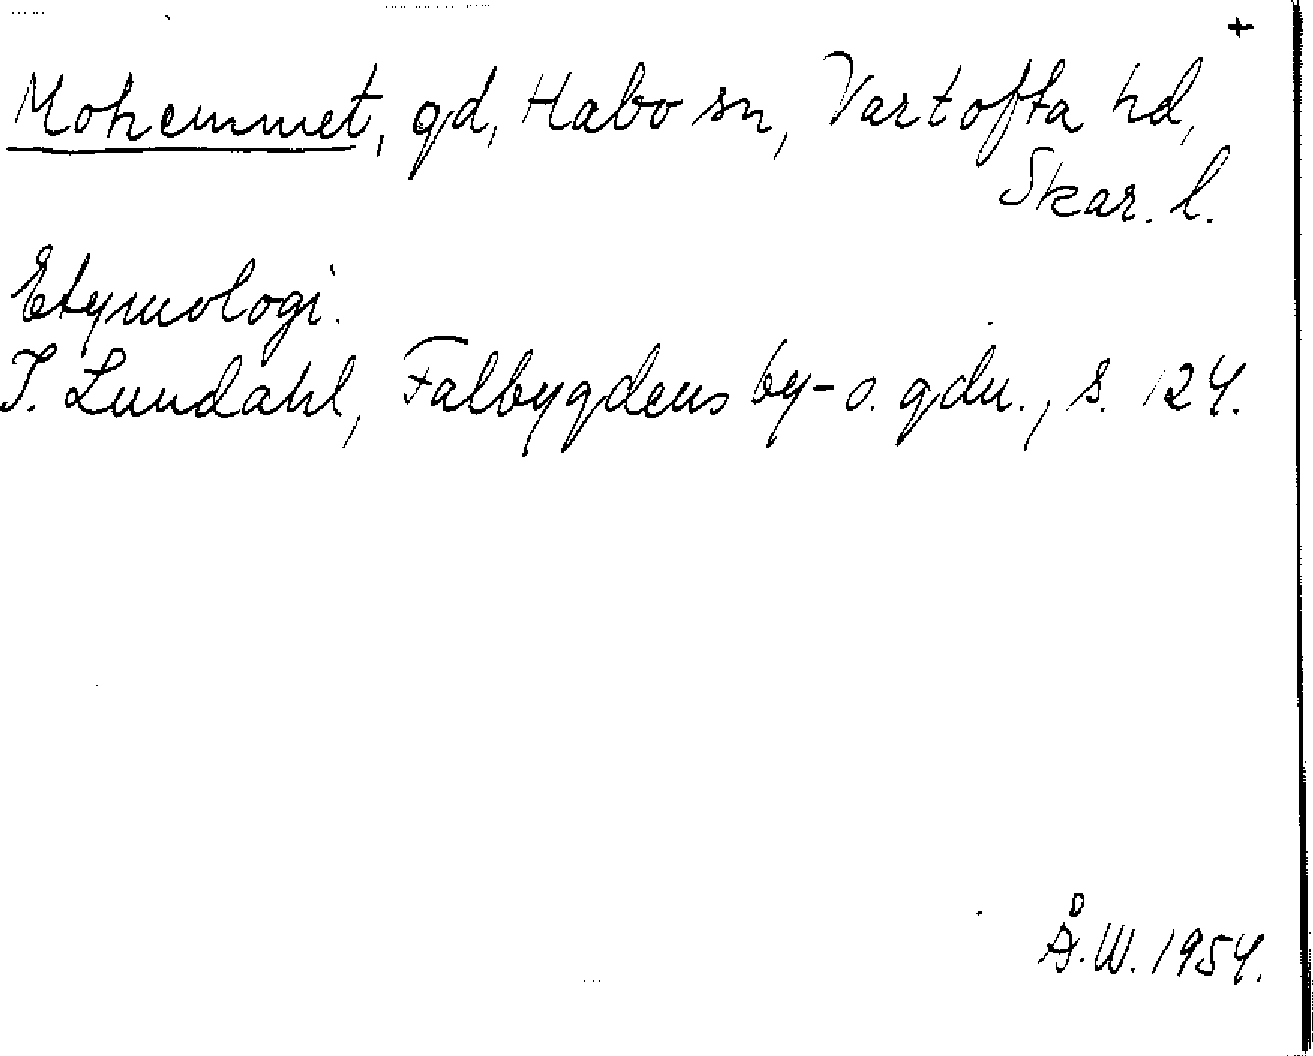 +
Mohemmet, gd, Habo sn, Vartofta hd,
Skar. l.
Etymologi.
I. Lundahl, Falbygdens by- o. gdn., s. 124.
Å.W. 1954.